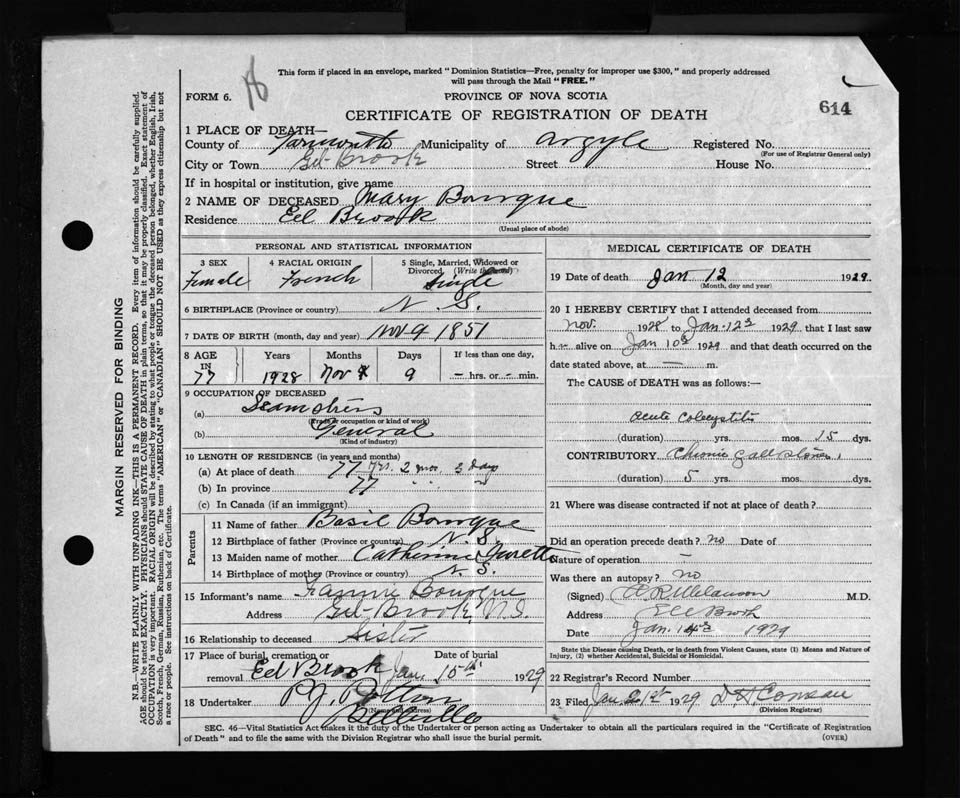 This form if placed in an envelope, marked "Dominion Statistics—Free, penalty for improper use $300," and properly addressed
will pass through the Mail "FREE."
FORM 6.
PROVINCE OF NOVA SCOTIA
614
CERTIFICATE OF REGISTRATION OF DEATH
1 PLACE OF DEATH—
County of Yarmouth Municipality of Argyle Registered No.
(For use of Registrar General only)
City or Town Eel-Brook Street House No.
If in hospital or institution, give name
2 NAME OF DECEASED Mary Bourque
Residence Eel Brook
(Usual place of abode)
PERSONAL AND STATISTICAL INFORMATION
3 SEX 4 RACIAL ORIGIN 5 Single, Married, Widowed or
Divorced (Write the word)
Female French Single
6 BIRTHPLACE (Province or country) N. S.
7 DATE OF BIRTH (month, day and year) Nov 9 1851
8 AGE Years Months Days If less than one day,
IN
77 1928 Nov 9 — hrs. or — min.
9 OCCUPATION OF DECEASED
(a) Seamstress
(Trade or occupation or kind of work)
(b) General
(Kind of industry)
10 LENGTH OF RESIDENCE (in years and months)
(a) At place of death 77 yrs. 2 mos. 3 days
(b) In province 77 " "
(c) In Canada (if an immigrant)
Parents
11 Name of father Basil Bourque
12 Birthplace of father (Province or country) N. S.
13 Maiden name of mother Catherine
14 Birthplace of mother (Province or country) N. S.
15 Informant's name Bourque
Address Eel-Brook, N.S.
16 Relationship to deceased Sister
17 Place of burial, cremation or Date of burial
removal Eel Brook Jan. 15th 1929
18 Undertaker P. J.
(Name and address)
Belleville
MEDICAL CERTIFICATE OF DEATH
19 Date of death Jan 12 1929.
(Month, day and year)
20 I HEREBY CERTIFY that I attended deceased from
Nov. 1928 to Jan. 12 1929, that I last saw
h alive on Jan 10 1929 and that death occurred on the
date stated above, at — m.
The CAUSE of DEATH was as follows:
Acute Colecystitis
(duration) yrs. mos. 15 dys.
CONTRIBUTORY Chronic gall stones,
(duration) 5 yrs. mos. dys.
21 Where was disease contracted if not at place of death?
Did an operation precede death? no Date of
Nature of operation —
Was there an autopsy? no
(Signed) A R Melanson M.D.
Address Eel Brook
Date Jan. 1929
State the Disease causing Death, or in death from Violent Causes, state (1) Means and Nature of
Injury, (2) whether Accidental, Suicidal or Homicidal.
22 Registrar's Record Number
23 Filed Jan 21st 1929 D. H. Comeau
(Division Registrar)
SEC. 46—Vital Statistics Act makes it the duty of the Undertaker or person acting as Undertaker to obtain all the particulars required in the "Certificate of Registration
of Death" and to file the same with the Division Registrar who shall issue the burial permit.
(OVER)
MARGIN RESERVED FOR BINDING
N.B.—WRITE PLAINLY WITH UNFADING INK—THIS IS A PERMANENT RECORD. Every item of information should be carefully supplied.
AGE should be stated EXACTLY. PHYSICIANS should STATE CAUSE OF DEATH in plain terms, so that it may be properly classified. Exact statement of
OCCUPATION is very important. RACIAL ORIGIN will be described by stating to what people or tongue the deceased person belonged, whether English, Irish,
Scotch, French, German, Russian, Ruthenian, etc. The terms "AMERICAN" or "CANADIAN" SHOULD NOT BE USED as they express citizenship but not
a race or people. See instructions on back of Certificate.